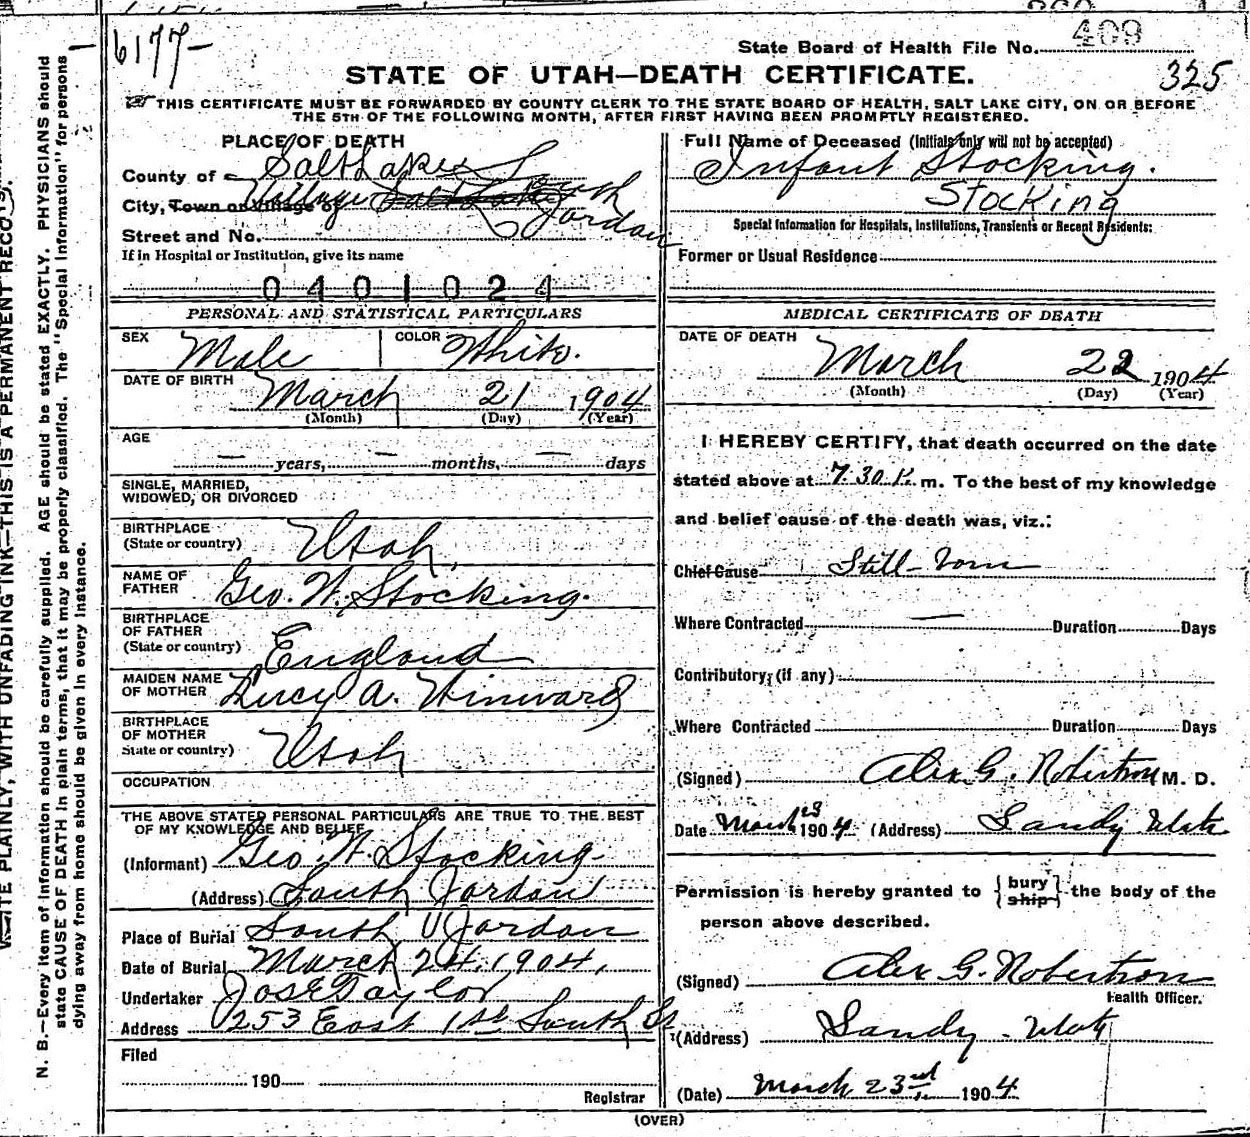 6177-
State Board of Health File No. 409
325
STATE OF UTAH—DEATH CERTIFICATE.
THIS CERTIFICATE MUST BE FORWARDED BY COUNTY CLERK TO THE STATE BOARD OF HEALTH, SALT LAKE CITY, ON OR BEFORE
THE 5TH OF THE FOLLOWING MONTH, AFTER FIRST HAVING BEEN PROMPTLY REGISTERED.
PLACE OF DEATH
County of Salt Lake
City, Town or Village of Village South
Jordan
Street and No.
If in Hospital or Institution, give its name
0401024
PERSONAL AND STATISTICAL PARTICULARS
SEX Male COLOR White.
DATE OF BIRTH March 21 1904
(Month) (Day) (Year)
AGE
— years, — months, — days
SINGLE, MARRIED,
WIDOWED, OR DIVORCED
BIRTHPLACE
(State or country) Utah
NAME OF
FATHER Geo. W. Stocking.
BIRTHPLACE
OF FATHER
(State or country) England
MAIDEN NAME
OF MOTHER Lucy A. Winward
BIRTHPLACE
OF MOTHER
State or country) Utah
OCCUPATION
THE ABOVE STATED PERSONAL PARTICULARS ARE TRUE TO THE BEST
OF MY KNOWLEDGE AND BELIEF
(Informant) Geo. W. Stocking
(Address) South Jordan
Place of Burial South Jordan
Date of Burial March 24, 1904,
Undertaker Jos E Taylor
Address 253 East 1st South St
Filed
190
Registrar
Full Name of Deceased (Initials only will not be accepted)
Infant Stocking.
Stocking
Special Information for Hospitals, Institutions, Transients or Recent Residents:
Former or Usual Residence
MEDICAL CERTIFICATE OF DEATH
DATE OF DEATH
March 22 1904
(Month) (Day) (Year)
I HEREBY CERTIFY, that death occurred on the date
stated above at 7.30 P. m. To the best of my knowledge
and belief cause of the death was, viz.:
Chief Cause Still-born
Where Contracted — Duration Days
Contributory, (if any)
Where Contracted Duration Days
(Signed) Alex G. Robertson M. D.
Date March 23 1904 (Address) Sandy Utah
Permission is hereby granted to {bury
ship} the body of the
person above described.
(Signed) Alex G. Robertson
Health Officer.
(Address) Sandy - Utah
(Date) March 23rd 1904
(OVER)
N. B.—Every item of information should be carefully supplied. AGE should be stated EXACTLY. PHYSICIANS should
state CAUSE OF DEATH in plain terms, that it may be properly classified. The "Special Information" for persons
dying away from home should be given in every instance.
PLAINLY, WITH UNFADING INK—THIS IS A PERMANENT